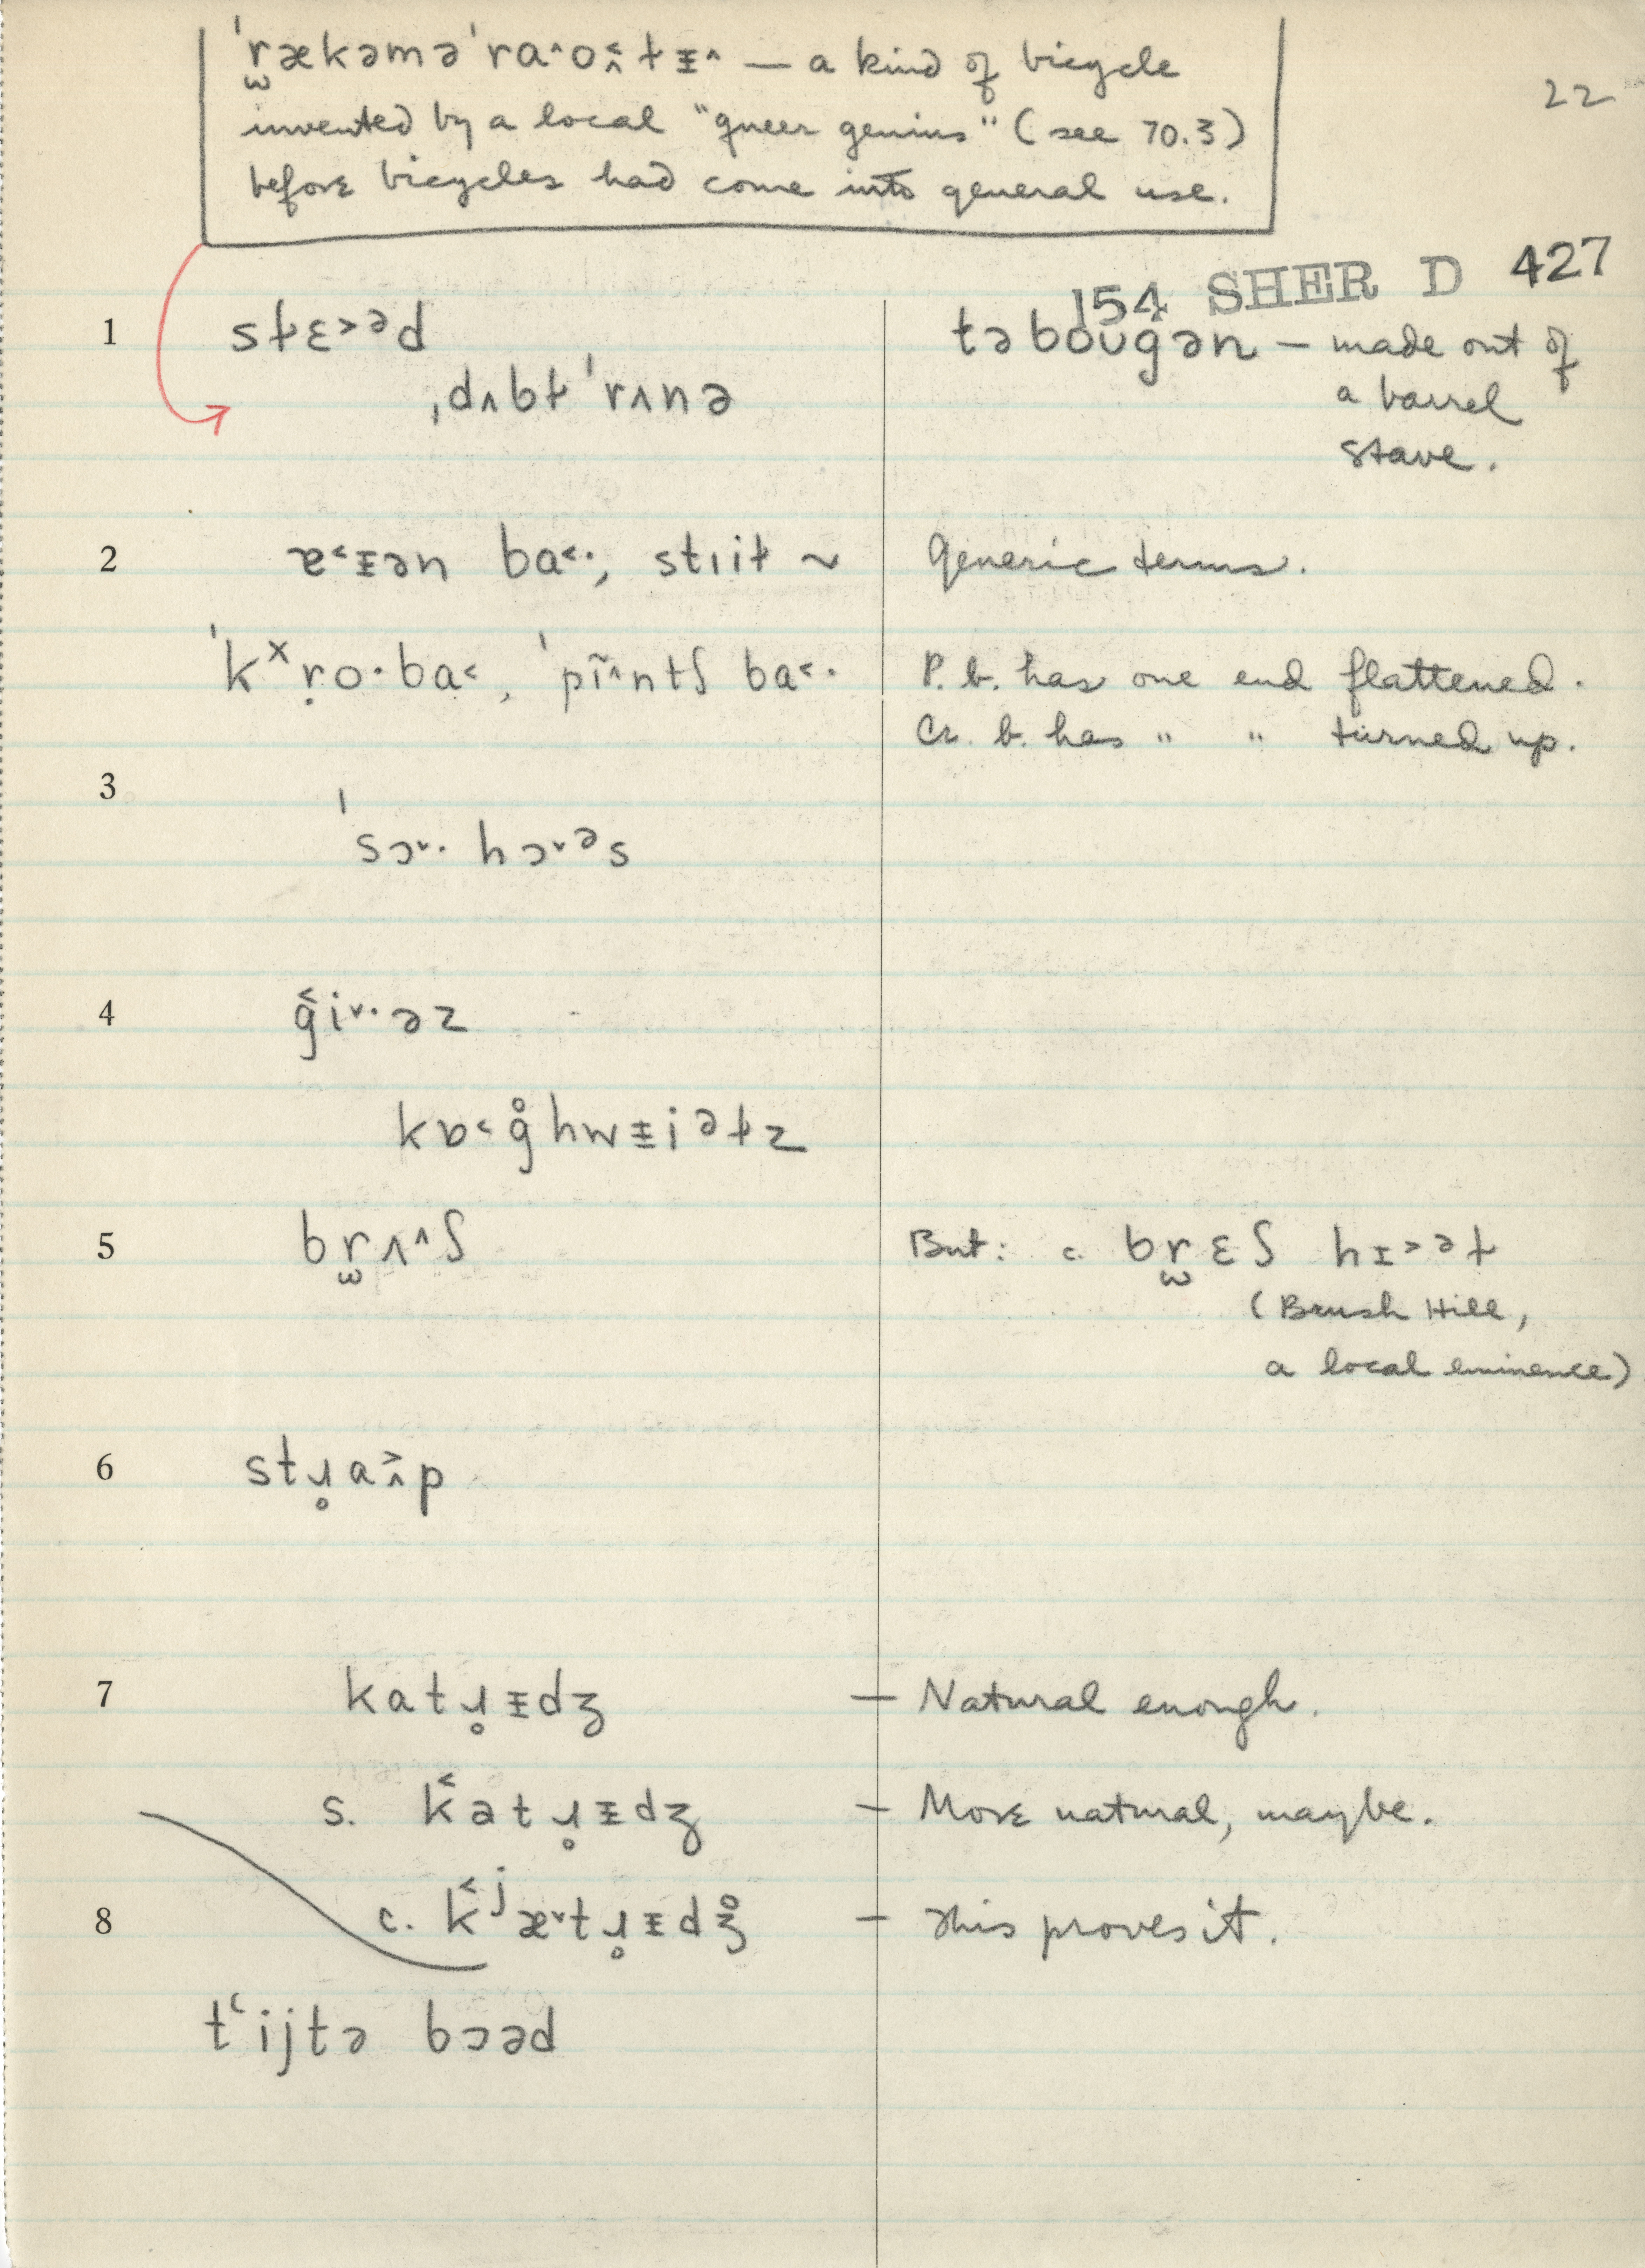 ˈr̫ækəməˈra^o˂̭ɫɪ̵^ — a kind of bicycle
invented by a local "queer genius" (see 70.3)
before bicycles had come into general use.
22
154 SHER D 427
1 sɫɛ˃ᵊd təbougən — made out of
ˌdʌbɫˈrʌnə a barrel
stave.
2 ɐ˂ɪ̵ən ba˂·, stıiɫ ~ Generic terms.
ˈkˣṛo·ba˂, ˈpĩ^ntʃ ba˂· P. b. has one end flattened.
Cr. b. has " " turned up.
3
ˈsɔ˅· hɔ˅ᵊs
4 ǧi˅·əz
kɒ˂g̊hwɪ̵iᵊɫz
5 br̫ʌ^ʃ But: c. br̫ɛʃ hɪ˃ᵊɫ
(Brush Hill,
a local eminence)
6 stɹ̥a˃̭p
7 katɹ̥ɪ̵dʒ — Natural enough.
s. k˂atɹ̥ɪ̵dʒ — More natural, maybe.
8 c. k˂ʲæ˅tɹ̥ɪ̵dʒ̊ — This proves it.
tʻijtə bɔəd